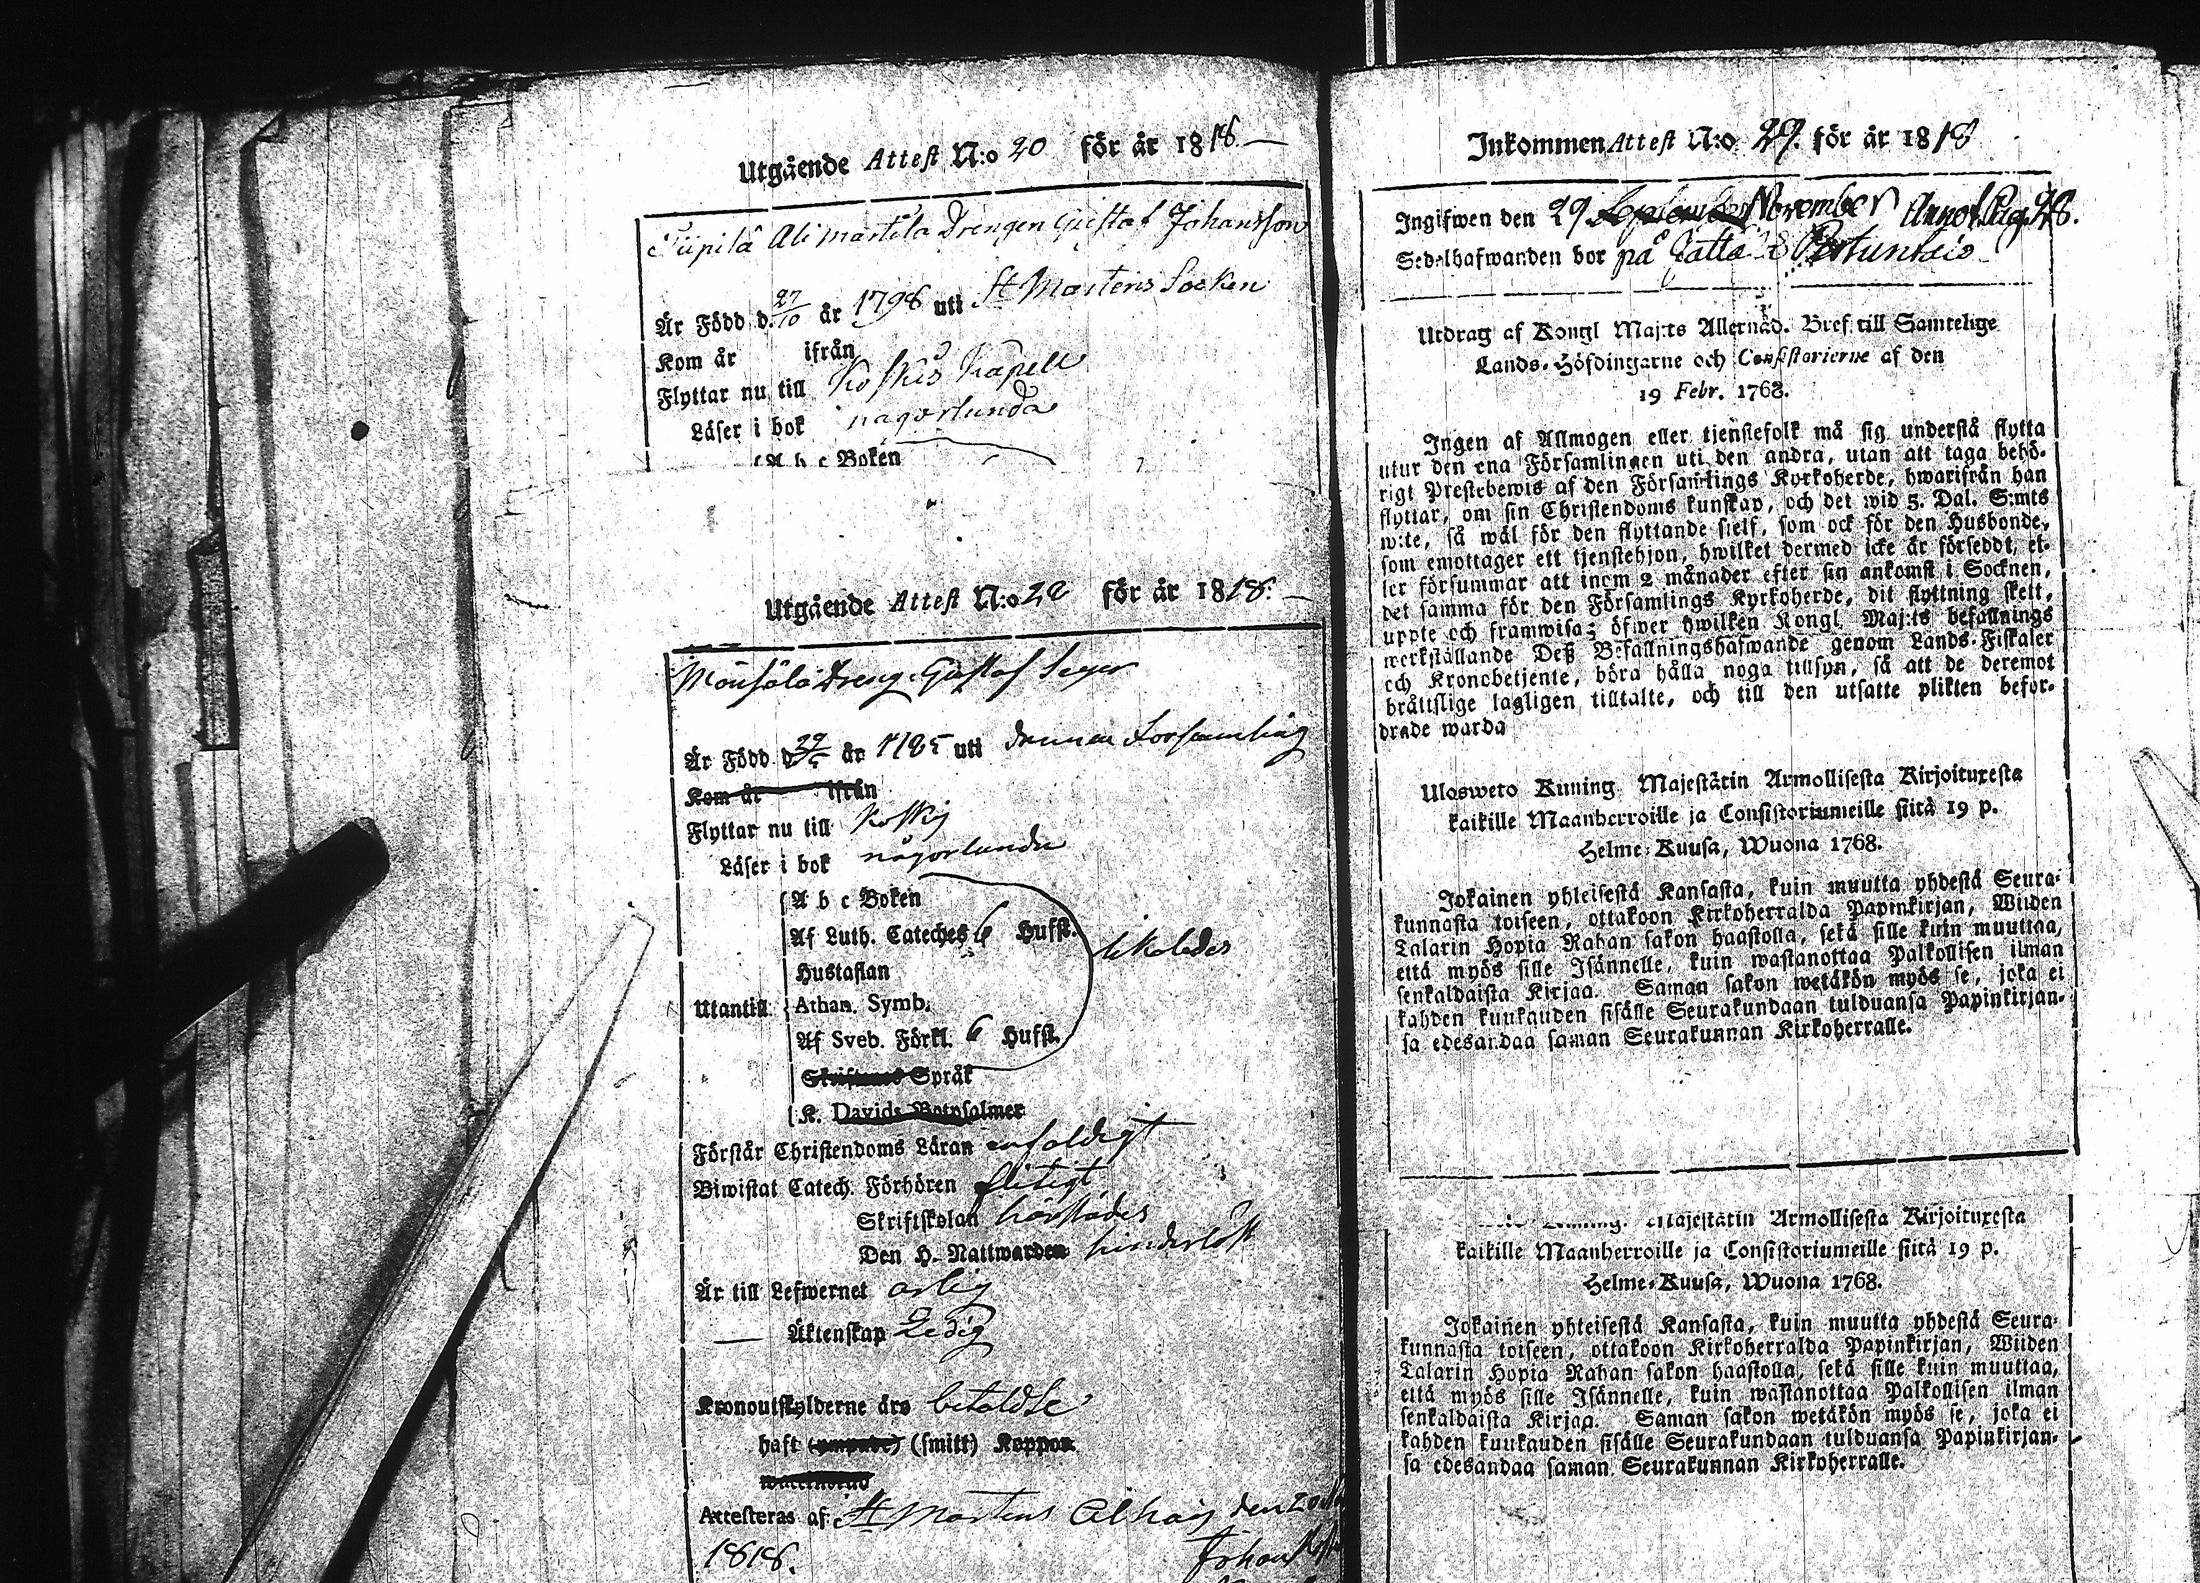 Utgående Attest N:o 20 för år 1818.
Tiipilä Ali Martila Drengen Gustaf Johansson
Är Född d. 27/10 år 1798 uti St Martens Socken
Kom år ifrån
Flyttar nu till Koskis Kapell
Läser i bok någorlunda
A b c Boken
Utgående Attest N:o 22 för år 1818.
Dreng Gustaf
Är Född d. 29 år uti denna Församling
Kom år ifrån
Flyttar nu till Koskis
Läser i bok någorlunda
A b c Boken
Af Luth. Cateches 6 Hufst.
Hustaflan
Utantill Athan. Symb.
Af Sveb. Förkl. 6 Hufst.
Skriftenes Språk
K. Davids Botpsalmer
Förstår Christendoms Läran enfaldigt
Biwistat Catech. Förhören flitigt
Skriftskolan
Den H. Nattwarden hinderlöst
Är till Lefwernet ärlig
Äktenskap Ledig
Kronoutskylderne äro betaldte
haft (smitt) Koppor
Attesteras af St Martens den
1818. Johan
Inkommen Attest N:o 29. för år 1818
Ingifwen den 29 September November Annot. Pag. 28.
Sedelhafwanden bor på Jatta
Utdrag af Kongl Maj:ts Allernåd. Bref till Samtelige
Lands-Höfdingarne och Consistorierne af den
19 Febr. 1768.
Ingen af Allmogen eller tjenstefolk må sig understå flytta
utur den ena Församlingen uti den andra, utan att taga behö-
rigt Prestebewis af den Församlings Kyrkoherde, hwarifrån han
flyttar, om sin Christendoms kunskap, och det wid 5. Dal. S:mts
wite, så wäl för den flyttande sielf, som ock för den Husbonde,
som emottager ett tjenstehjon, hwilket dermed icke är förseddt, el-
ler försummar att inom 2 månader efter sin ankomst i Socknen,
det samma för den Församlings Kyrkoherde, dit flyttning skett,
uppte och framwisa; öfwer hwilken Kongl. Maj:ts befallnings
werkställande Deß Befallningshafwande genom Lands-Fiskaler
och Kronobetjente, böra hålla noga tillsyn, så att de deremot
bråttslige lagligen tilltalte, och till den utsatte plikten befor-
drade warda
Ulosweto Kuning. Majestätin Armollisesta Kirjoituxesta
kaikille Maanherroille ja Consistoriumeille siitä 19 p.
Helme-Kuusa, Wuona 1768.
Jokainen yhteisestä Kansasta, kuin muutta yhdestä Seura-
kunnasta toiseen, ottakoon Kirkoherralda Papinkirjan, Wiiden
Talarin Hopia Rahan sakon haastolla, sekä sille kuin muuttaa,
että myös sille Isännelle, kuin wastanottaa Palkollisen ilman
senkaldaista Kirjaa. Saman sakon wetäkön myös se, joka ei
kahden kuukauden sisälle Seurakundaan tulduansa Papinkirjan-
sa edesandaa saman Seurakunnan Kirkoherralle.
Majestätin Armollisesta Kirjoituxesta
kaikille Maanherroille ja Consistoriumeille siitä 19 p.
Helme-Kuusa, Wuona 1768.
Jokainen yhteisestä Kansasta, kuin muutta yhdestä Seura-
kunnasta toiseen, ottakoon Kirkoherralda Papinkirjan, Wiiden
Talarin Hopia Rahan sakon haastolla, sekä sille kuin muuttaa,
että myös sille Isännelle, kuin wastanottaa Palkollisen ilman
senkaldaista Kirjaa. Saman sakon wetäkön myös se, joka ei
kahden kuukauden sisälle Seurakundaan tulduansa Papinkirjan-
sa edesandaa saman Seurakunnan Kirkoherralle.